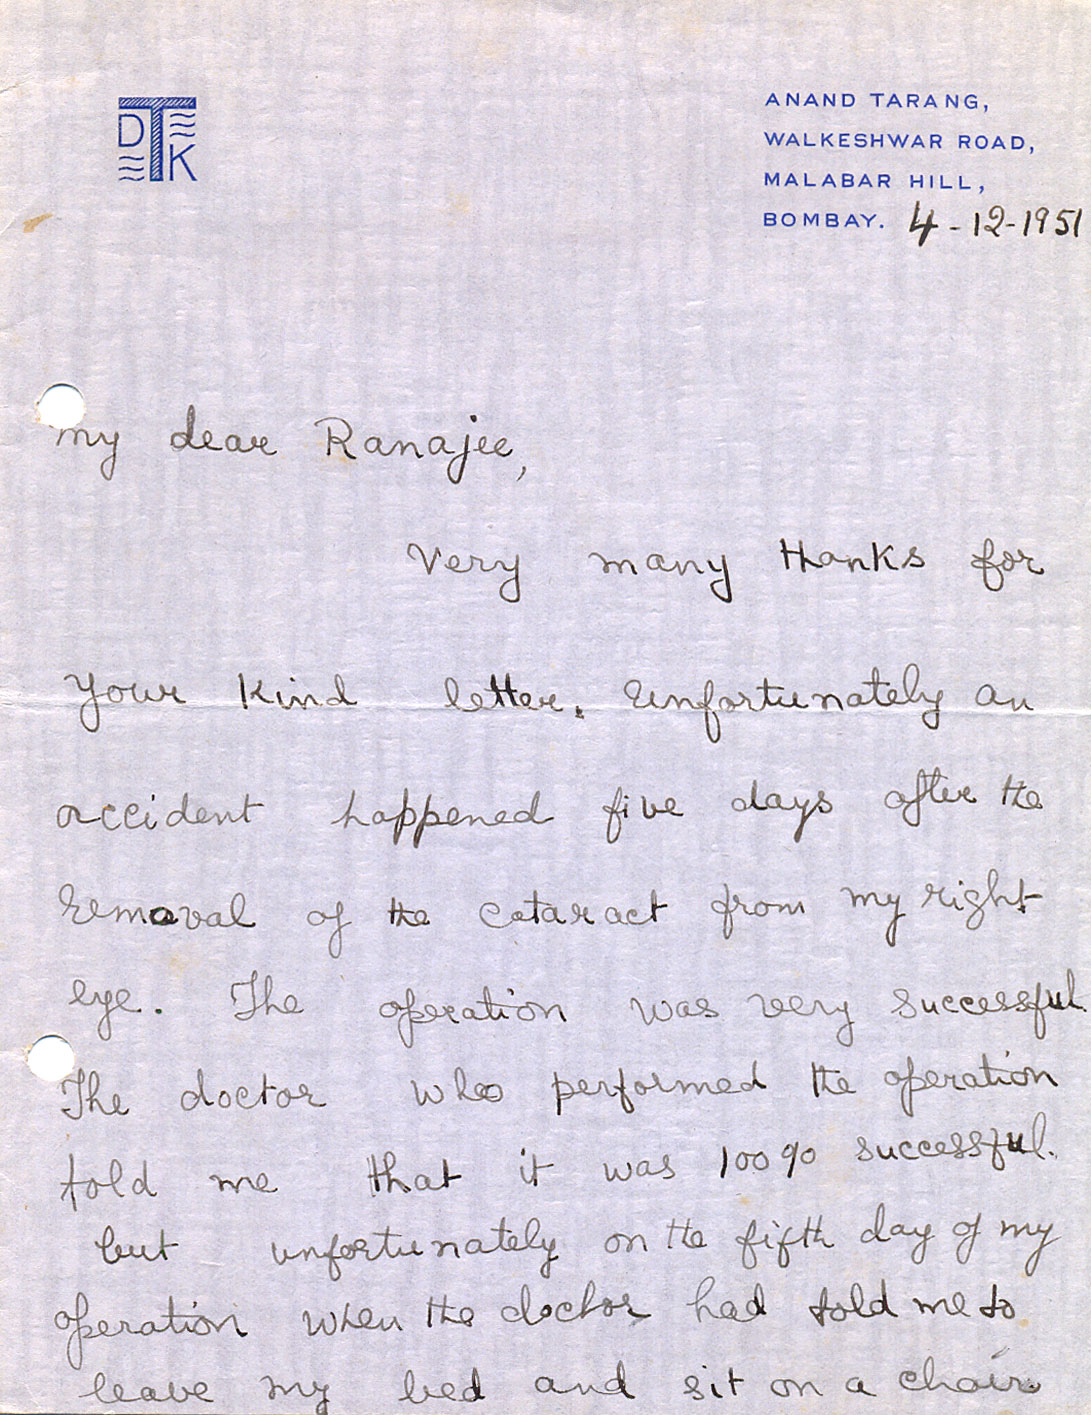 DTK
ANAND TARANG,
WALKESHWAR ROAD,
MALABAR HILL,
BOMBAY. 4-12-1951
My dear Ranajee,
Very many thanks for
your kind letter. Unfortunately an
accident happened five days after the
removal of the cataract from my right
eye. The operation was very successful
The doctor who performed the operation
told me that it was 100% successful.
but unfortunately on the fifth day of my
operation when the doctor had told me to
leave my bed and sit on a chair